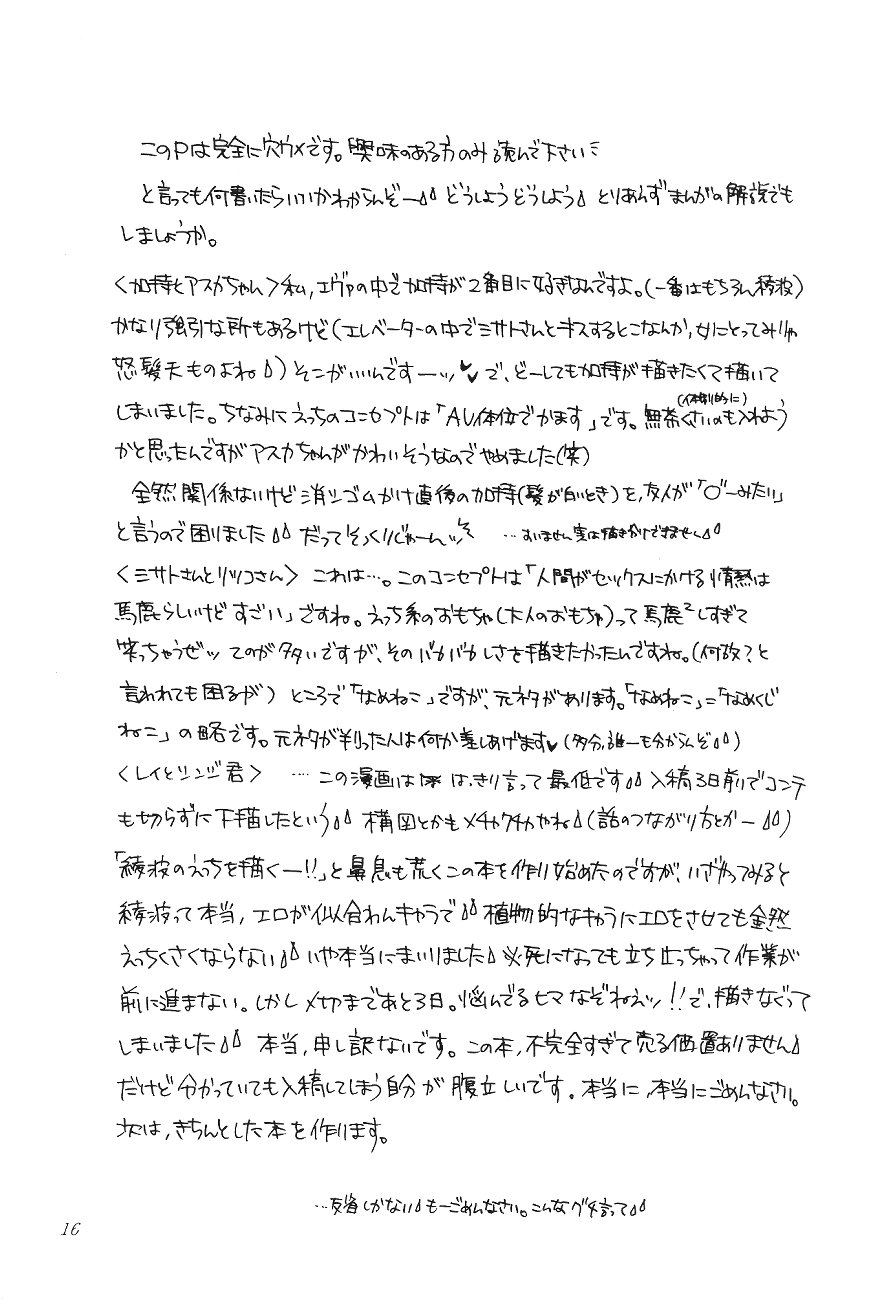 このPは完全に穴ウメです。興味のある方のみ読んで下さい
と言っても何書いたらいいかわからんぞー どうしようどうしよう とりあえずまんがの解説でも
しましょうか。
〈加持とアスカちゃん〉私,エヴァの中で加持が2番目に好きなんですよ。(一番はもちろん綾波)
かなり強引な所もあるけど(エレベーターの中でミサトさんとキスするとこなんか,女にとってみりゃ
怒髪天ものよね)そこがいいんですーッ♥♥ で、どーしても加持が描きたくて描いて
しまいました。ちなみにえっちのコンセプトは「AV体位でかます」です。無茶くさいのも入れよう
(体制的に)
かと思ったんですがアスカちゃんがかわいそうなのでやめました(笑)
全然関係ないけど消シゴムかけ直後の加持(髪が白いとき)を,友人が「 ーみたい」
と言うので困りました だってそっくりじゃーんッ …すいません実は描きわけできません
〈ミサトさんとリツコさん〉 これは…。このコンセプトは「人間がセックスにかける情熱は
馬鹿らしいけどすごい」ですね。えっち系のおもちゃ(大人のおもちゃ)って馬鹿²しすぎて
笑っちゃうぜッ てのが多いですが、そのバカバカしさを描きたかったんですね。(何故?と
言われても困るが) ところで「なめねこ」ですが、元ネタがあります。「なめねこ」=「なめくじ
ねこ」の略です。元ネタが判った人は何か差しあげます♥(多分,誰一も分からんぞ)
〈レイとシンジ君〉 …この漫画は はっきり言って最低です 入稿3日前でコンテ
も切らずに下描したという 構図とかもメチャクチャやね(話のつながり方とかー)
「綾波のえっちを描くー!!」と鼻息も荒くこの本を作り始めたのですが、いざやってみると
綾波って本当,エロが似合わんキャラで 植物的なキャラにエロをさせても全然
えっちくさくならない いや本当にまいりました 必死になっても立ち止っちゃって作業が
前に進まない。しかし〆切まであと3日。悩んでるヒマなぞねえッ!!で、描きなぐって
しまいました 本当,申し訳ないです。この本,不完全すぎて売る価置ありません
だけど分かっていても入稿してしまう自分が腹立しいです。本当に,本当にごめんなさい。
次は,きちんとした本を作ります。
…反省しかない もーごめんなさい。こんなグチ言って
16